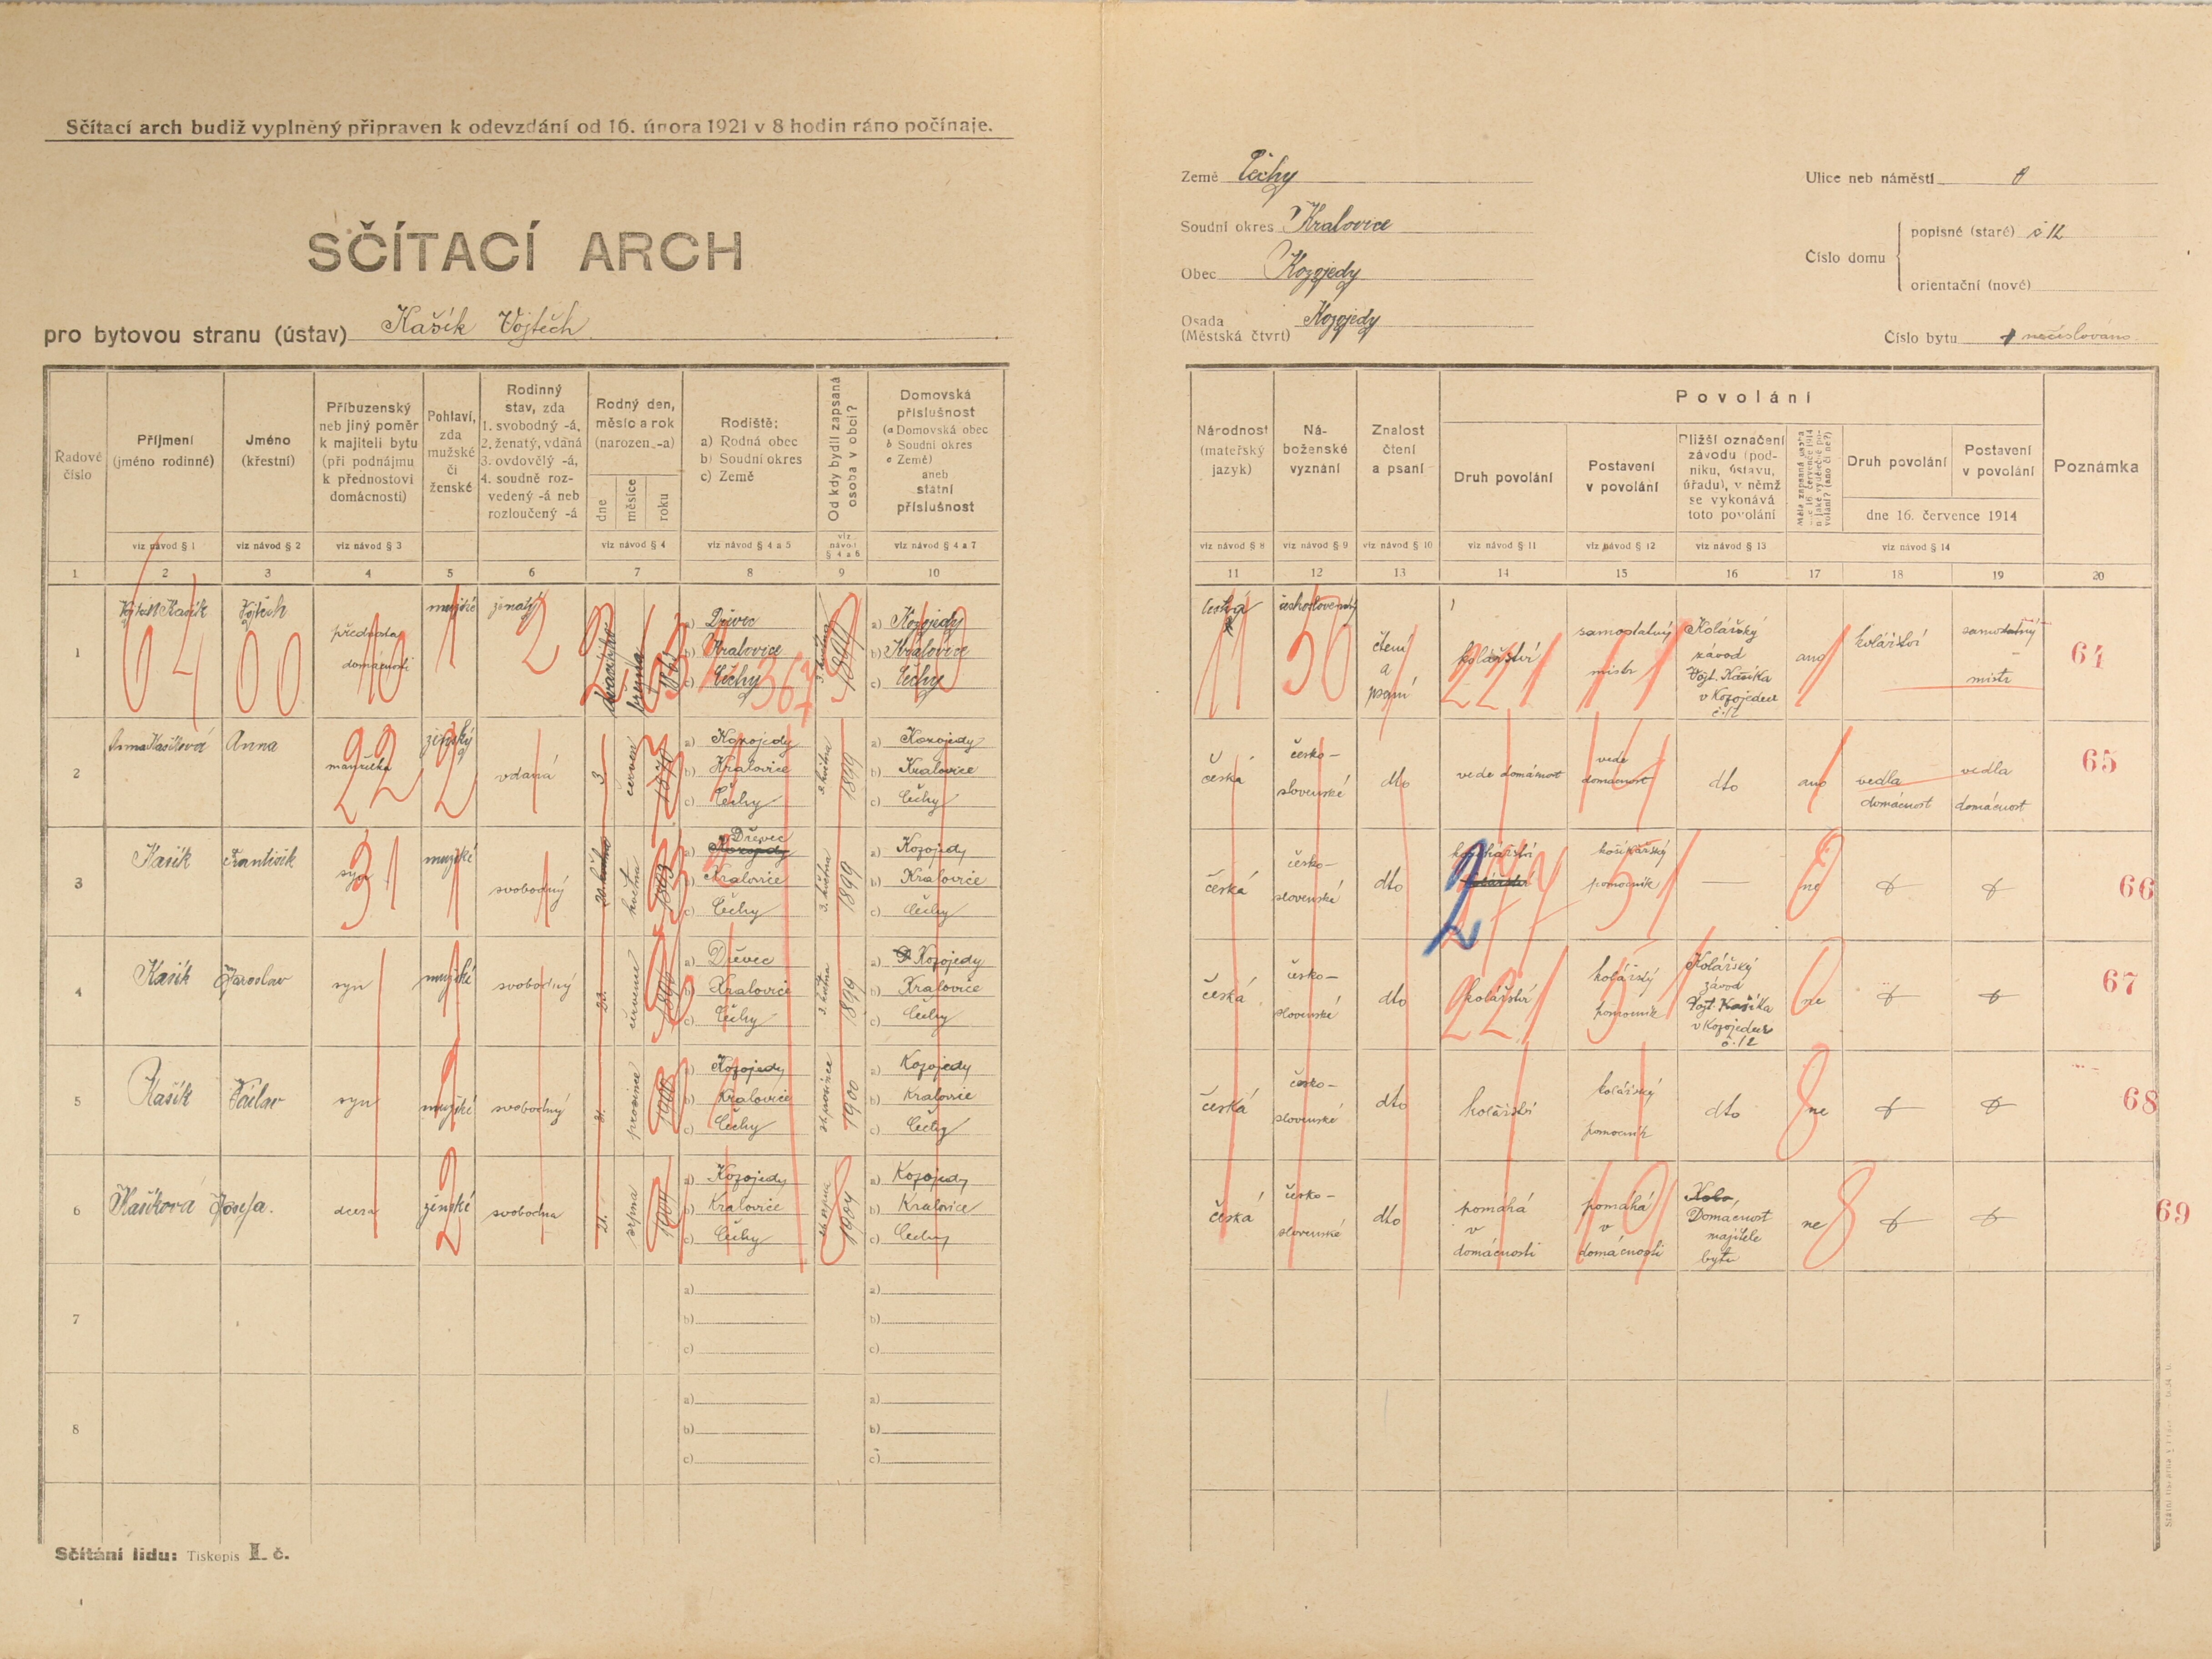 Sčítací arch budiž vyplněný připraven k odevzdání od 16. února 1921 v 8 hodin ráno počínaje.
SČÍTACÍ ARCH
pro bytovou stranu (ústav) Kašík Vojtěch
Země Čechy
Soudní okres Kralovice
Obec Kozojedy
Osada
(Městská čtvrt) Kozojedy
Ulice neb náměstí
Číslo domu
popisné (staré) č 12
orientační (nové)
Číslo bytu nečíslováno
Řadové číslo
Příjmení
(jméno rodinné)
Jméno
(křestní)
Příbuzenský
neb jiný poměr
k majiteli bytu
(při podnájmu
k přednostovi
domácnosti)
Pohlaví,
zda
mužské
či
ženské
Rodinný
stav, zda
1. svobodný -á,
2. ženatý, vdaná
3. ovdovělý -á,
4. soudně roz-
vedený -á neb
rozloučený -á
Rodný den,
měsíc a rok
(narozen -a)
dne
měsíce
roku
Rodiště:
a) Rodná obec
b) Soudní okres
c) Země
Od kdy bydlí zapsaná
osoba v obci?
Domovská
příslušnost
(a Domovská obec
b Soudní okres
c Země)
aneb
státní
příslušnost
viz návod § 1
viz návod § 2
viz návod § 3
viz návod § 4
viz návod § 4 a 5
viz
návod
§ 4 a 6
viz návod § 4 a 7
1 2 3 4 5 6 7 8 9 10
Národnost
(mateřský
jazyk)
Ná-
boženské
vyznání
Znalost
čtení
a psaní
Povolání
Druh povolání
Postavení
v povolání
Bližší označení
závodu (pod-
niku, ústavu,
úřadu), v němž
se vykonává
toto povolání
Měla zapsaná osoba
dne 16. července 1914
nějaké výdělečné po-
volání? (ano či ne?)
Druh povolání
Postavení
v povolání
dne 16. července 1914
Poznámka
viz návod § 8
viz návod § 9
viz návod § 10
viz návod § 11
viz návod § 12
viz návod § 13
viz návod § 14
11 12 13 14 15 16 17 18 19 20
1
Vojtěch Kašík
Vojtěch
přednosta
domácnosti
mužské
ženatý
dvacátého
března
a) Dřevec
b) Kralovice
c) Čechy
3. května
1899
a) Kozojedy
b) Kralovice
c) Čechy
česká
československý
čtení
a
psaní
kolářství
samostatný
mistr
Kolářský
závod
Vojt. Kašíka
v Kozojedech
č. 12
ano
kolářství
samostatný
mistr
64
2
Anna Kašíková
Anna
manželka
ženský
vdaná
3.
červen
a) Kozojedy
b) Kralovice
c) Čechy
3. května
1899
a) Kozojedy
b) Kralovice
c) Čechy
česká
česko-
slovenské
dto
vede domácnost
vede
domácnost
dto
ano
vedla
domácnost
vedla
domácnost
65
3
Kašík
František
syn
mužské
svobodný
května
a) Kozojedy Dřevec
b) Kralovice
c) Čechy
3. května
1899
a) Kozojedy
b) Kralovice
c) Čechy
česká
česko-
slovenské
dto
košíkářství
kolářství
košíkářský
pomocník
ne
66
4
Kašík
Jaroslav
syn
mužské
svobodný
července
a) Dřevec
b) Kralovice
c) Čechy
3. května
1899
a) Kozojedy
b) Kralovice
c) Čechy
česká
česko-
slovenské
dto
kolářství
kolářský
pomocník
Kolářský
závod
Vojt. Kašíka
v Kozojedech
č. 12
ne
67
5
Kašík
Václav
syn
mužské
svobodný
prosince
1900
a) Kozojedy
b) Kralovice
c) Čechy
prosince
1900
a) Kozojedy
b) Kralovice
c) Čechy
česká
česko-
slovenské
dto
kolářství
kolářský
pomocník
dto
ne
68
6
Kašíková
Josefa.
dcera
ženské
svobodna
21.
srpna
1904
a) Kozojedy
b) Kralovice
c) Čechy
srpna
1904
a) Kozojedy
b) Kralovice
c) Čechy
česká
česko-
slovenské
dto
pomáhá
v
domácnosti
pomáhá
v
domácnosti
Domácnost
majitele
bytu
ne
69
7
a)
b)
c)
a)
b)
c)
8
a)
b)
c)
a)
b)
c)
Sčítání lidu: Tiskopis I. č.